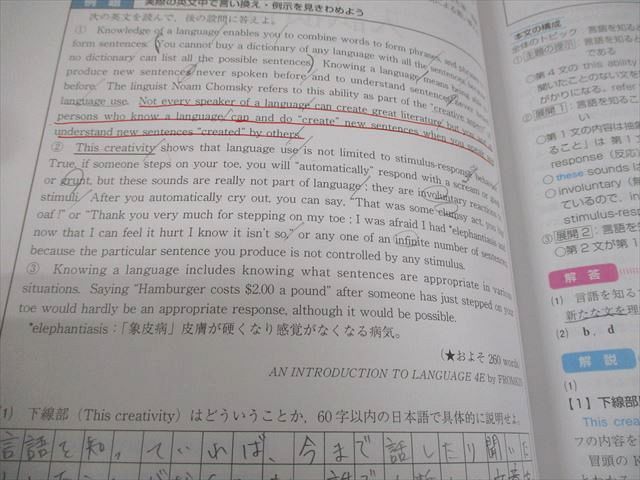 例題 実際の英文中で言い換え・例示を見きわめよう
次の英文を読んで，後の設問に答えよ。
① Knowledge of a language enables you to combine words to form phrases, and phrases
form sentences. You cannot buy a dictionary of any language with all the sentences, because
no dictionary can list all the possible sentences. Knowing a language means being able
produce new sentences never spoken before and to understand sentences never
before. The linguist Noam Chomsky refers to this ability as part of the "creative aspect" of
language use. Not every speaker of a language can create great literature, but you
persons who know a language, can and do "create" new sentences when you speak
understand new sentences "created" by others.
② This creativity shows that language use is not limited to stimulus-response behavior.
True, if someone steps on your toe, you will "automatically" respond with a scream or gasp
or grunt, but these sounds are really not part of language; they are involuntary reactions to
stimuli. After you automatically cry out, you can say, "That was some clumsy act, you
oaf!" or "Thank you very much for stepping on my toe; I was afraid I had *elephantiasis and
now that I can feel it hurt I know it isn't so," or any one of an infinite number of sentences,
because the particular sentence you produce is not controlled by any stimulus.
③ Knowing a language includes knowing what sentences are appropriate in various
situations. Saying "Hamburger costs $2.00 a pound" after someone has just stepped on your
toe would hardly be an appropriate response, although it would be possible.
*elephantiasis:「象皮病」皮膚が硬くなり感覚がなくなる病気。
(★およそ 260 words)
AN INTRODUCTION TO LANGUAGE 4E by FROMKIN
(1) 下線部 (This creativity) はどういうことか，60字以内の日本語で具体的に説明せよ。
言語を知っていれば、今まで話したり聞いた
本文の構成
全体のトピック：言語を知ると
①主題の提示：言語を知る
である
○第4文の this ability
聞いたことのない文を
がかりになる。refer
②展開1：言語を知ること
い
○第1文の内容は抽象
ること」は 第1文
response (反応)
○ these sounds
○ involuntary (
ているので，in
stimulus-resp
③展開2：言語を知
○第2文が第1
解答
(1) 言語を知る
新たな文を理
(2) b, d
解説
(1)
【1】下線部
This crea
フの内容を
冒頭の K